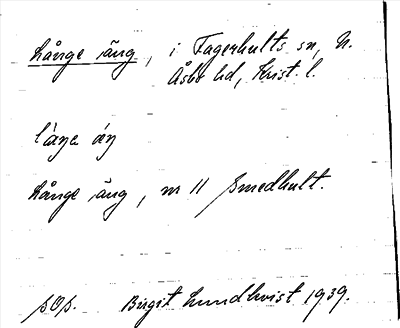 Långe äng, i Fagerhults sn, N.
Åsbo hd, Krist. l.
Långe äng, nr 11 Smedhult.
Birgit Lundkvist 1939.